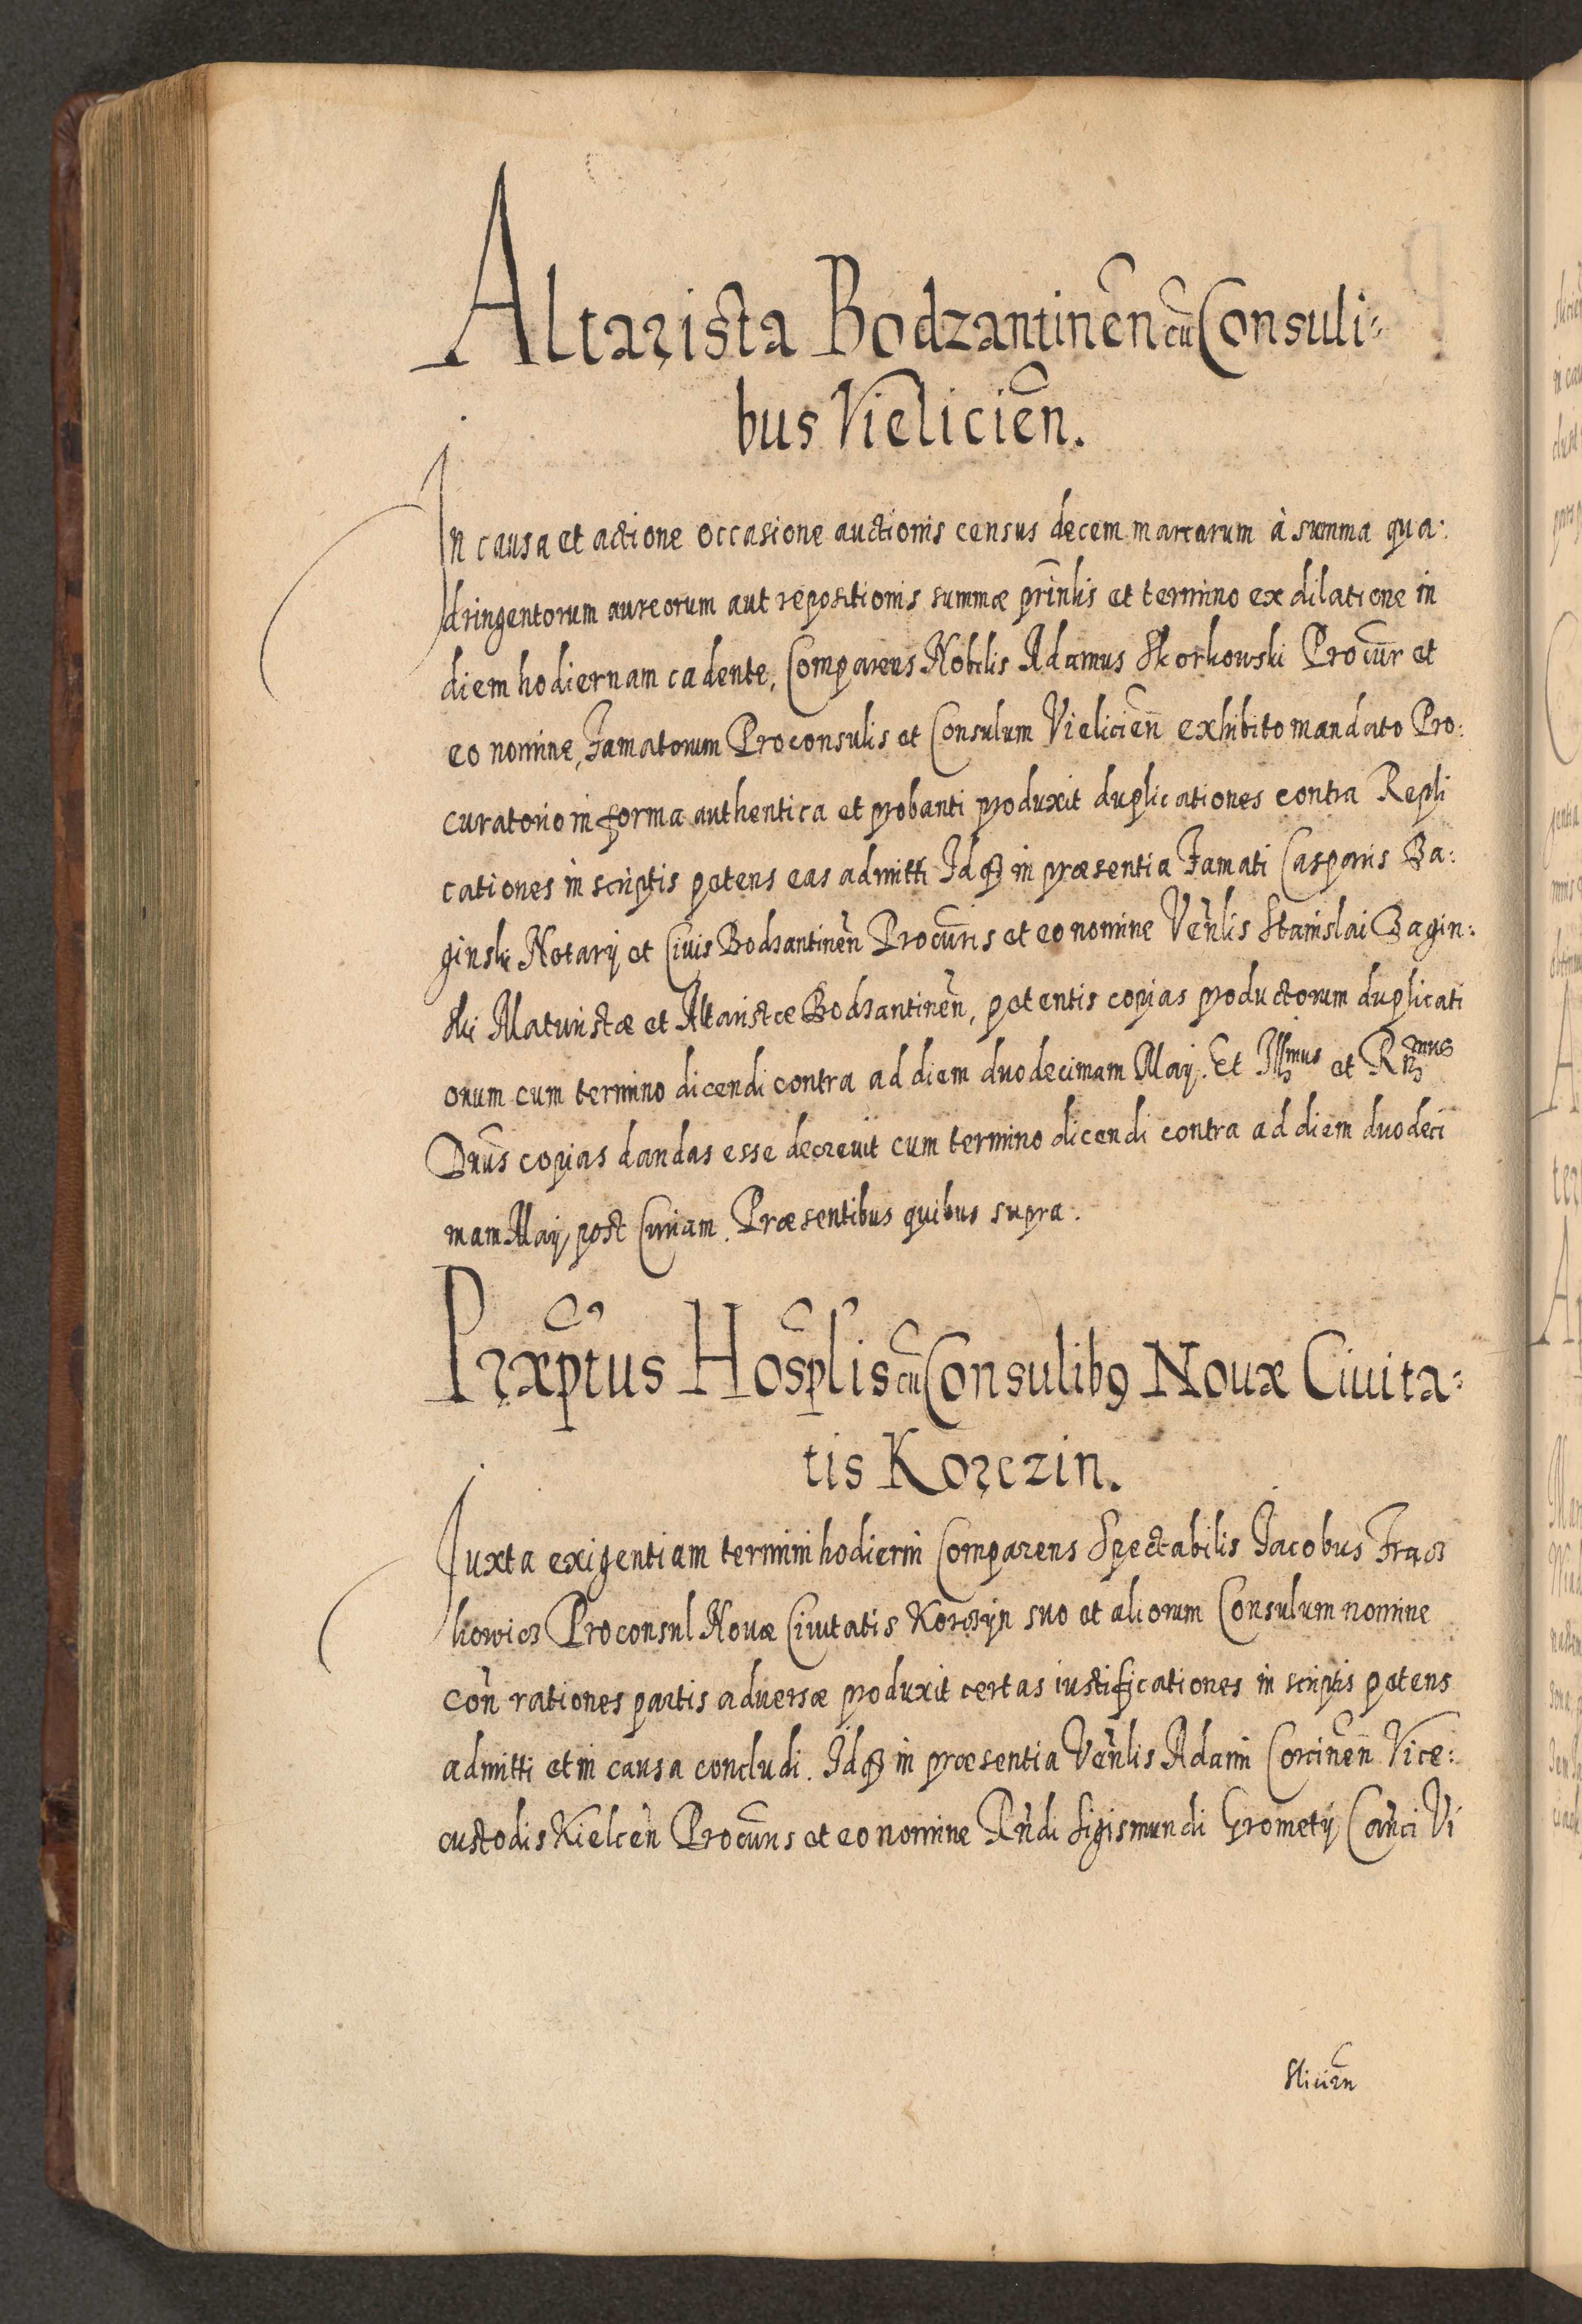 Altarista Bodzantinen̄ cū Consuli⸗
bus Vielicien̄.
In causa et actione occasione auctionis census decem marcarum à summa qua:
dringentorum aureorum aut repositionis summæ prīnlis et termino ex dilatione in
diem hodiernam cadente, Comparens Nobilis Adamus Skorkowski Procūr et
eo nomine, Famatorum Proconsulis et Consulum Vielicien̄ exhibito mandato Pro:
curatorio in forma authentica et probanti produxit duplicationes contra Repli
cationes in scriptis petens eas admitti Idqꝫ in præsentia Famati Casparis Ba:
ginski Notarij et Civis Bodzantinen̄ Procūris et eo nomine Ven̄lis Stanislai Bagin:
ski Maturistæ et Altaristæ Bodzantinen̄, petentis copias productorum duplicati
onum cum termino dicendi contra ad diem duodecimam Maij. Et Illmus et Rmus
Dnūs copias dandas esse decreuit cum termino dicendi contra ad diem duodeci
mam Maij, post Curiam. Præsentibus quibus supra.
Præp̄tus Hosp̄lis cū Consulibꝰ Nouæ Ciuita⸗
tis Korczin.
Iuxta exigentiam termini hodierni Comparens Spectabilis Iacobus Fracz
kowicz Proconsul Nouæ Ciuitatis Korczyn suo et aliorum Consulum nomine
con̄ rationes partis aduersæ produxit certas iustificationes in scriptis petens
admitti et in causa concludi. Idqꝫ in præsentia Ven̄lis Adami Corcinen̄ Vice:
custodis Kielcen̄ Procūris et eo nomine Rn̄di Sigismundi Grometij Can̄ci Vi
sliciēn